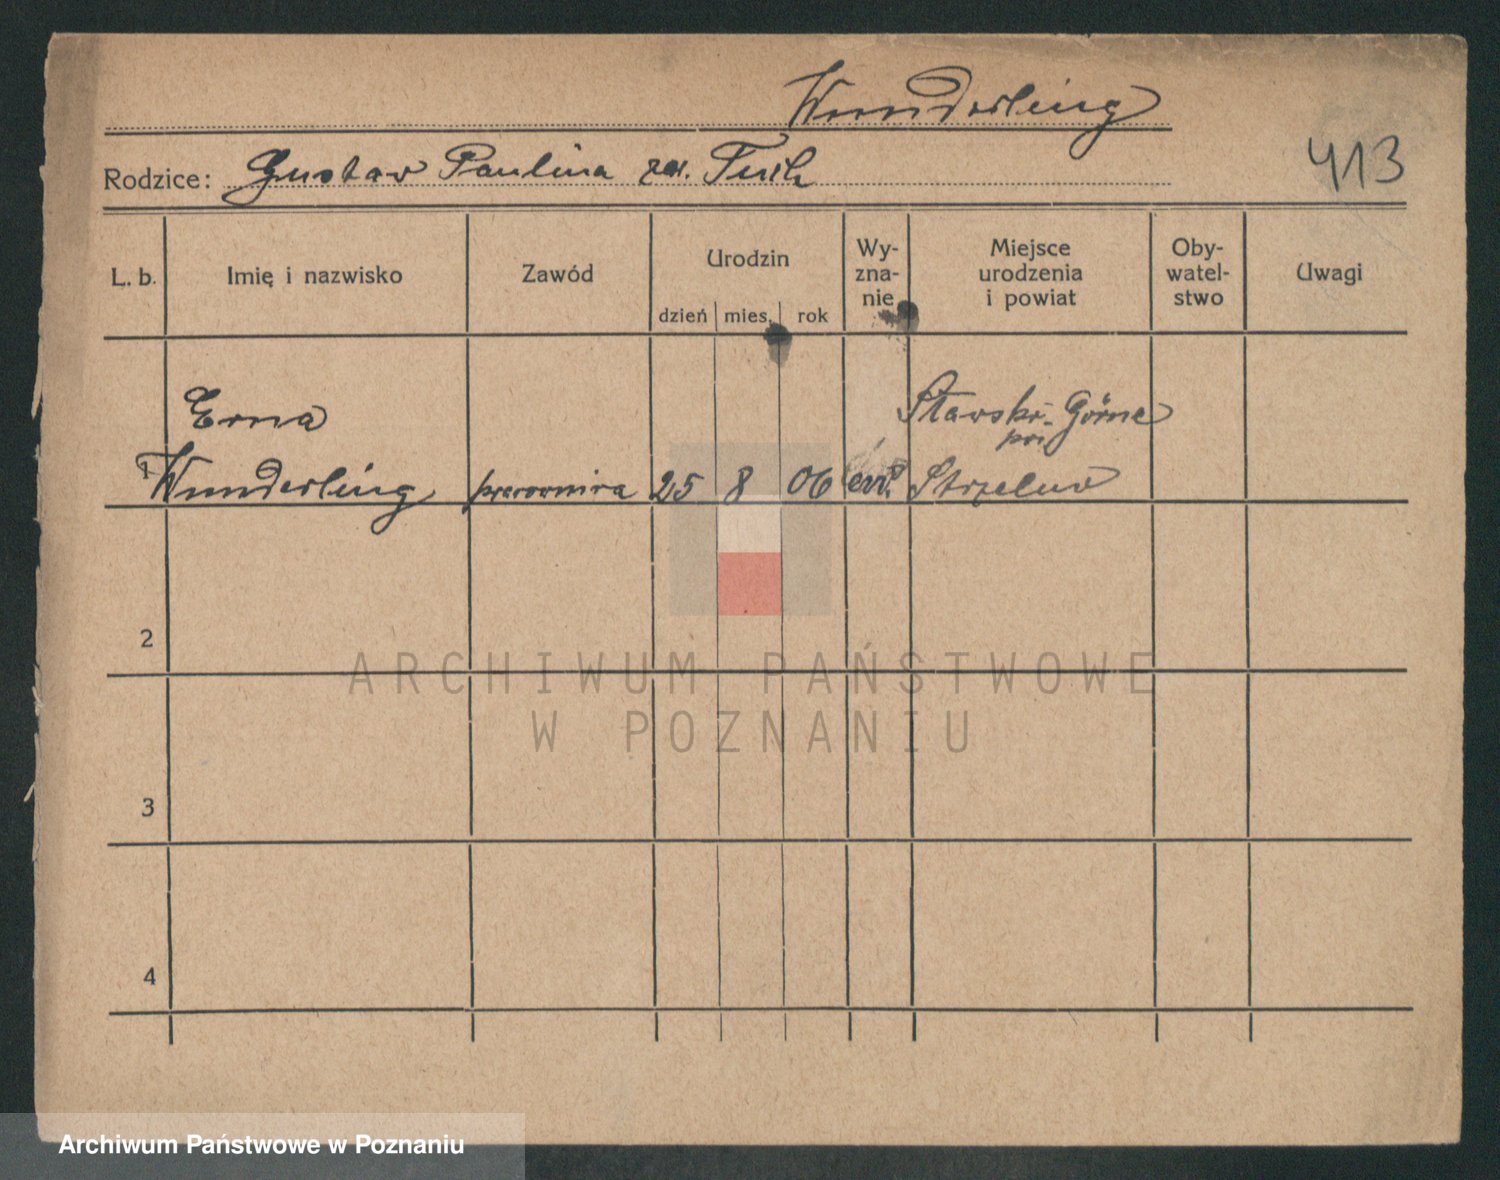 Wunderling
413
Rodzice: Gustav Paulina
L. b.
Imię i nazwisko
Zawód
Urodzin
dzień mies. rok
Wy-
zna-
nie
Miejsce
urodzenia
i powiat
Oby-
watel-
stwo
Uwagi
1
Erna
Wunderling
25
8
06
Górne
2
3
4
ARCHIWUM PAŃSTWOWE
W POZNANIU
Archiwum Państwowe w Poznaniu